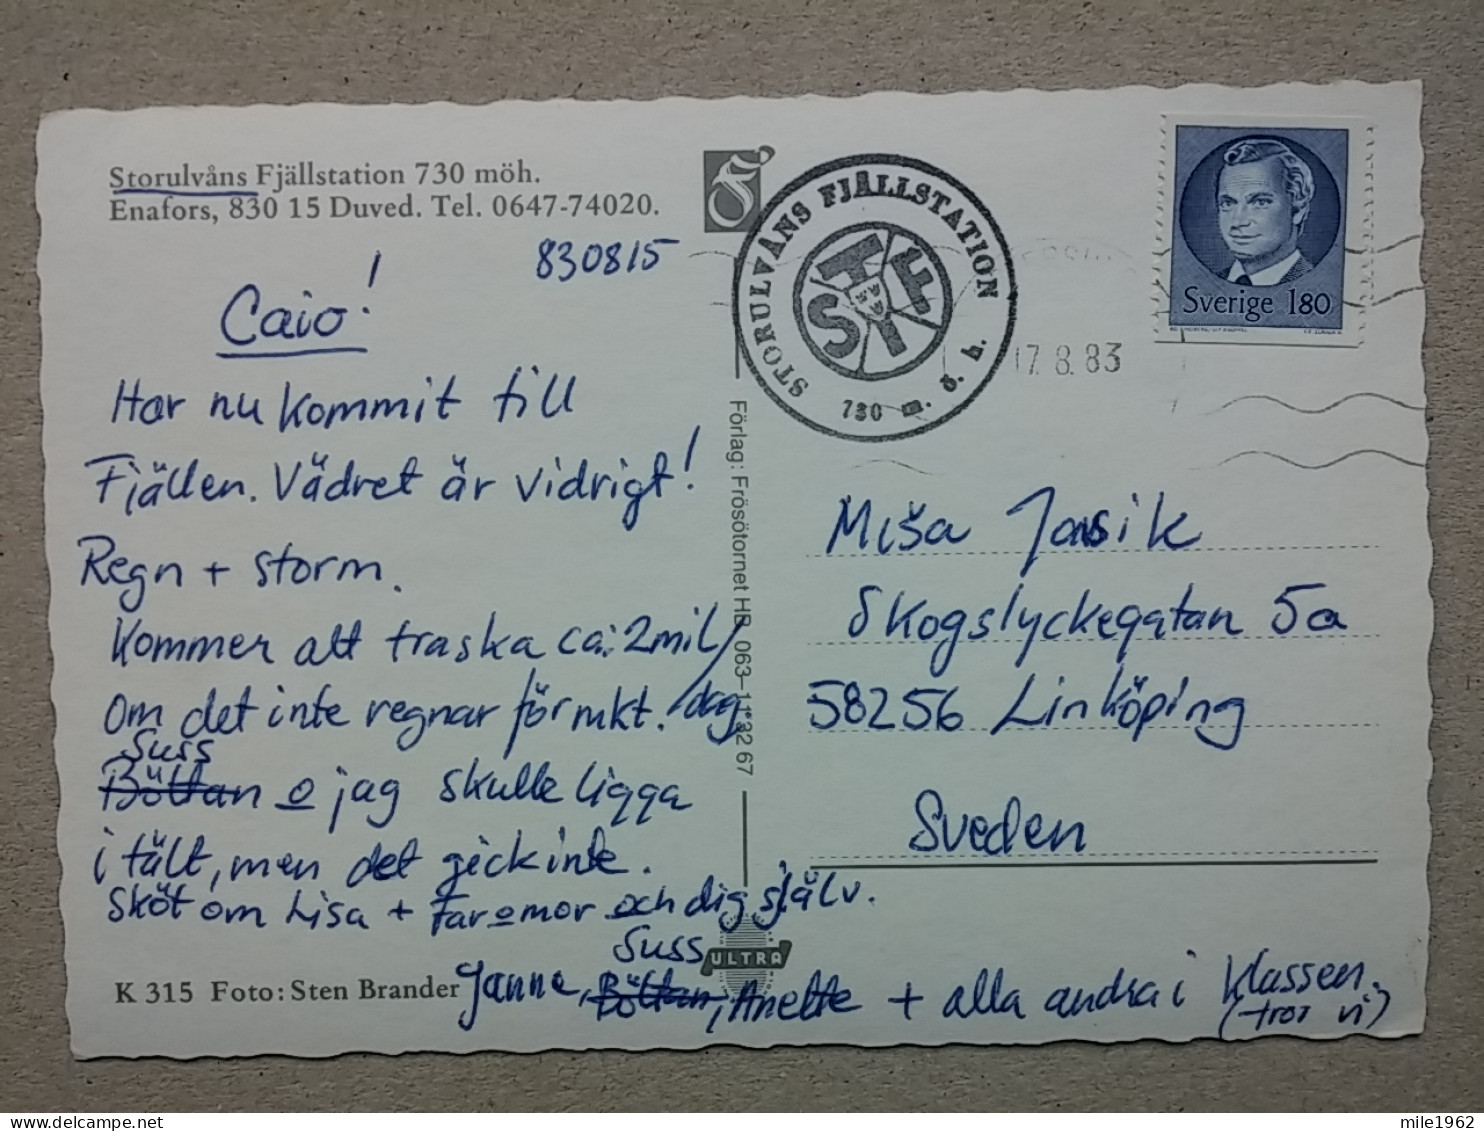 Storulvåns Fjällstation 730 möh.
Enafors, 830 15 Duved. Tel. 0647-74020.
830815
Caio!
Har nu kommit till
Fjällen. Vädret är vidrigt!
Regn + storm.
Kommer att traska ca: 2mil/
dag
om det inte regnar för mkt.
Suss
Böttan o jag skulle ligga
i tält, men det gick inte.
Sköt om Lisa + Far o mor och dig själv.
Suss
Janne, Böttan, Anette + alla andra i klassen.
(tror vi)
K 315 Foto: Sten Brander
ULTRA
Förlag: Frösötornet HB 063-11 32 67
STORULVÅNS FJÄLLSTATION
STF
730 m. ö. h.
17. 8. 83
Sverige 180
Miša Jasik
Skogslyckegatan 5a
58256 Linköping
Sveden
mile1962